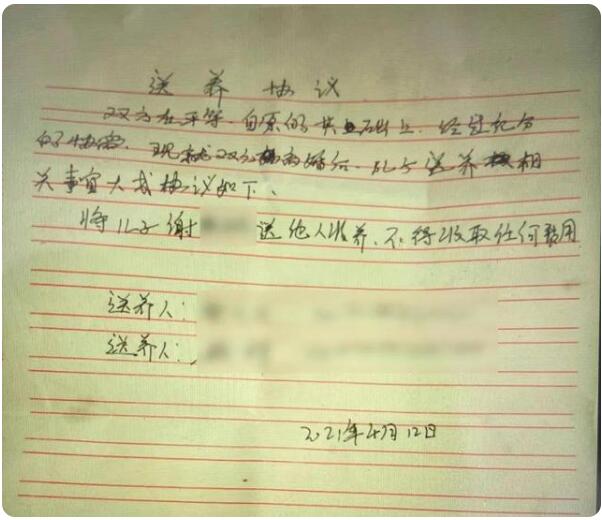 送养协议
双方在平等、自原的基础上、经过充分
的协商、现就双方离婚后、儿子送养相
关事宜大成协议如下、
将儿子谢 送他人收养、不得收取任何费用
送养人:
送养人:
2021年4月12日